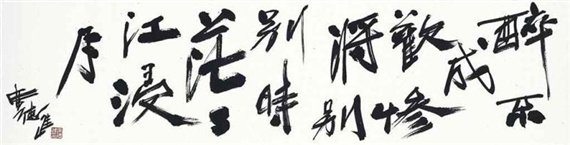 醉不
成
歡慘
將別
別時
茫々
江浸
月